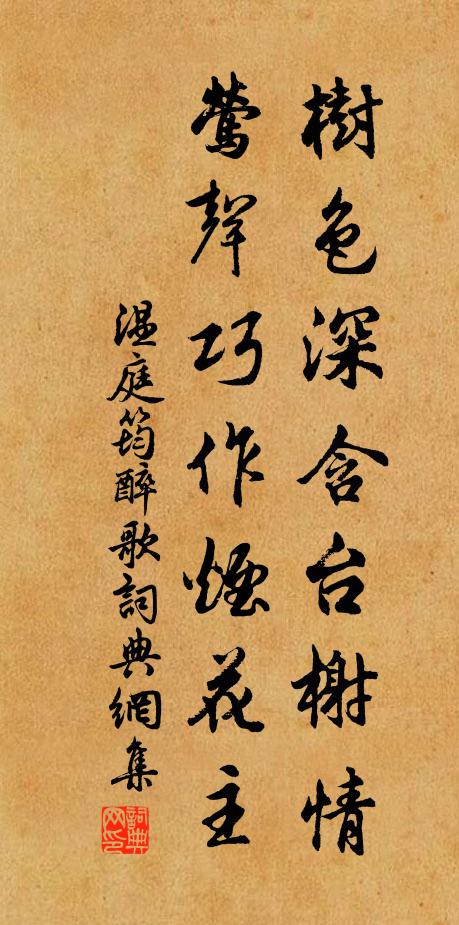 樹色深含台榭情
鶯聲巧作煙花主
溫庭筠醉歌詞典網集
詞典網印